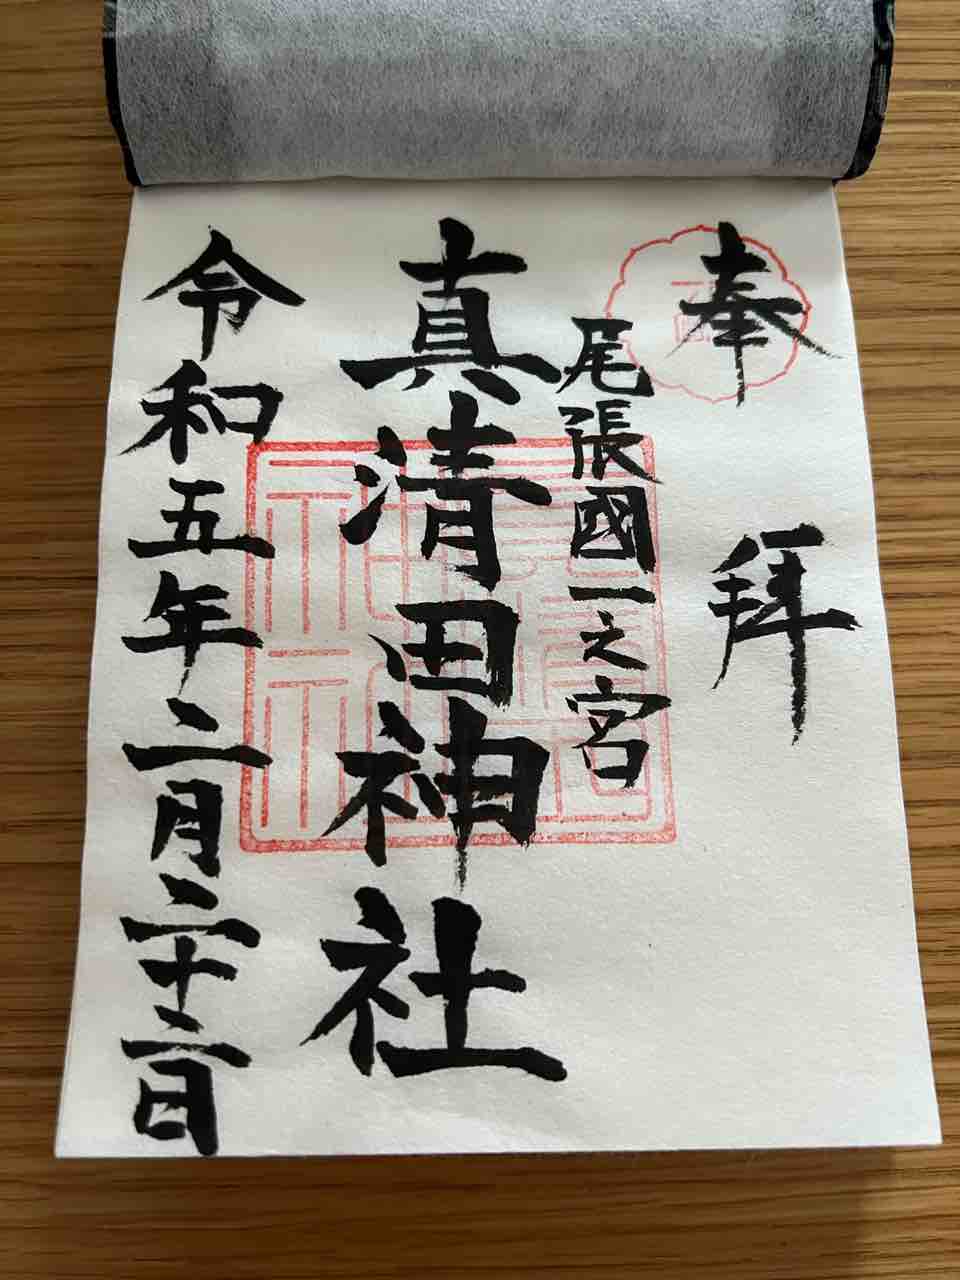 奉拝
尾張國一之宮
真清田神社
令和五年二月二十二日